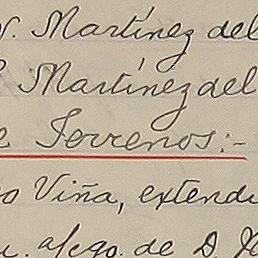 Martínez del
Martínez del
Terrenos:-
Viña, extend
afcgo. de D.